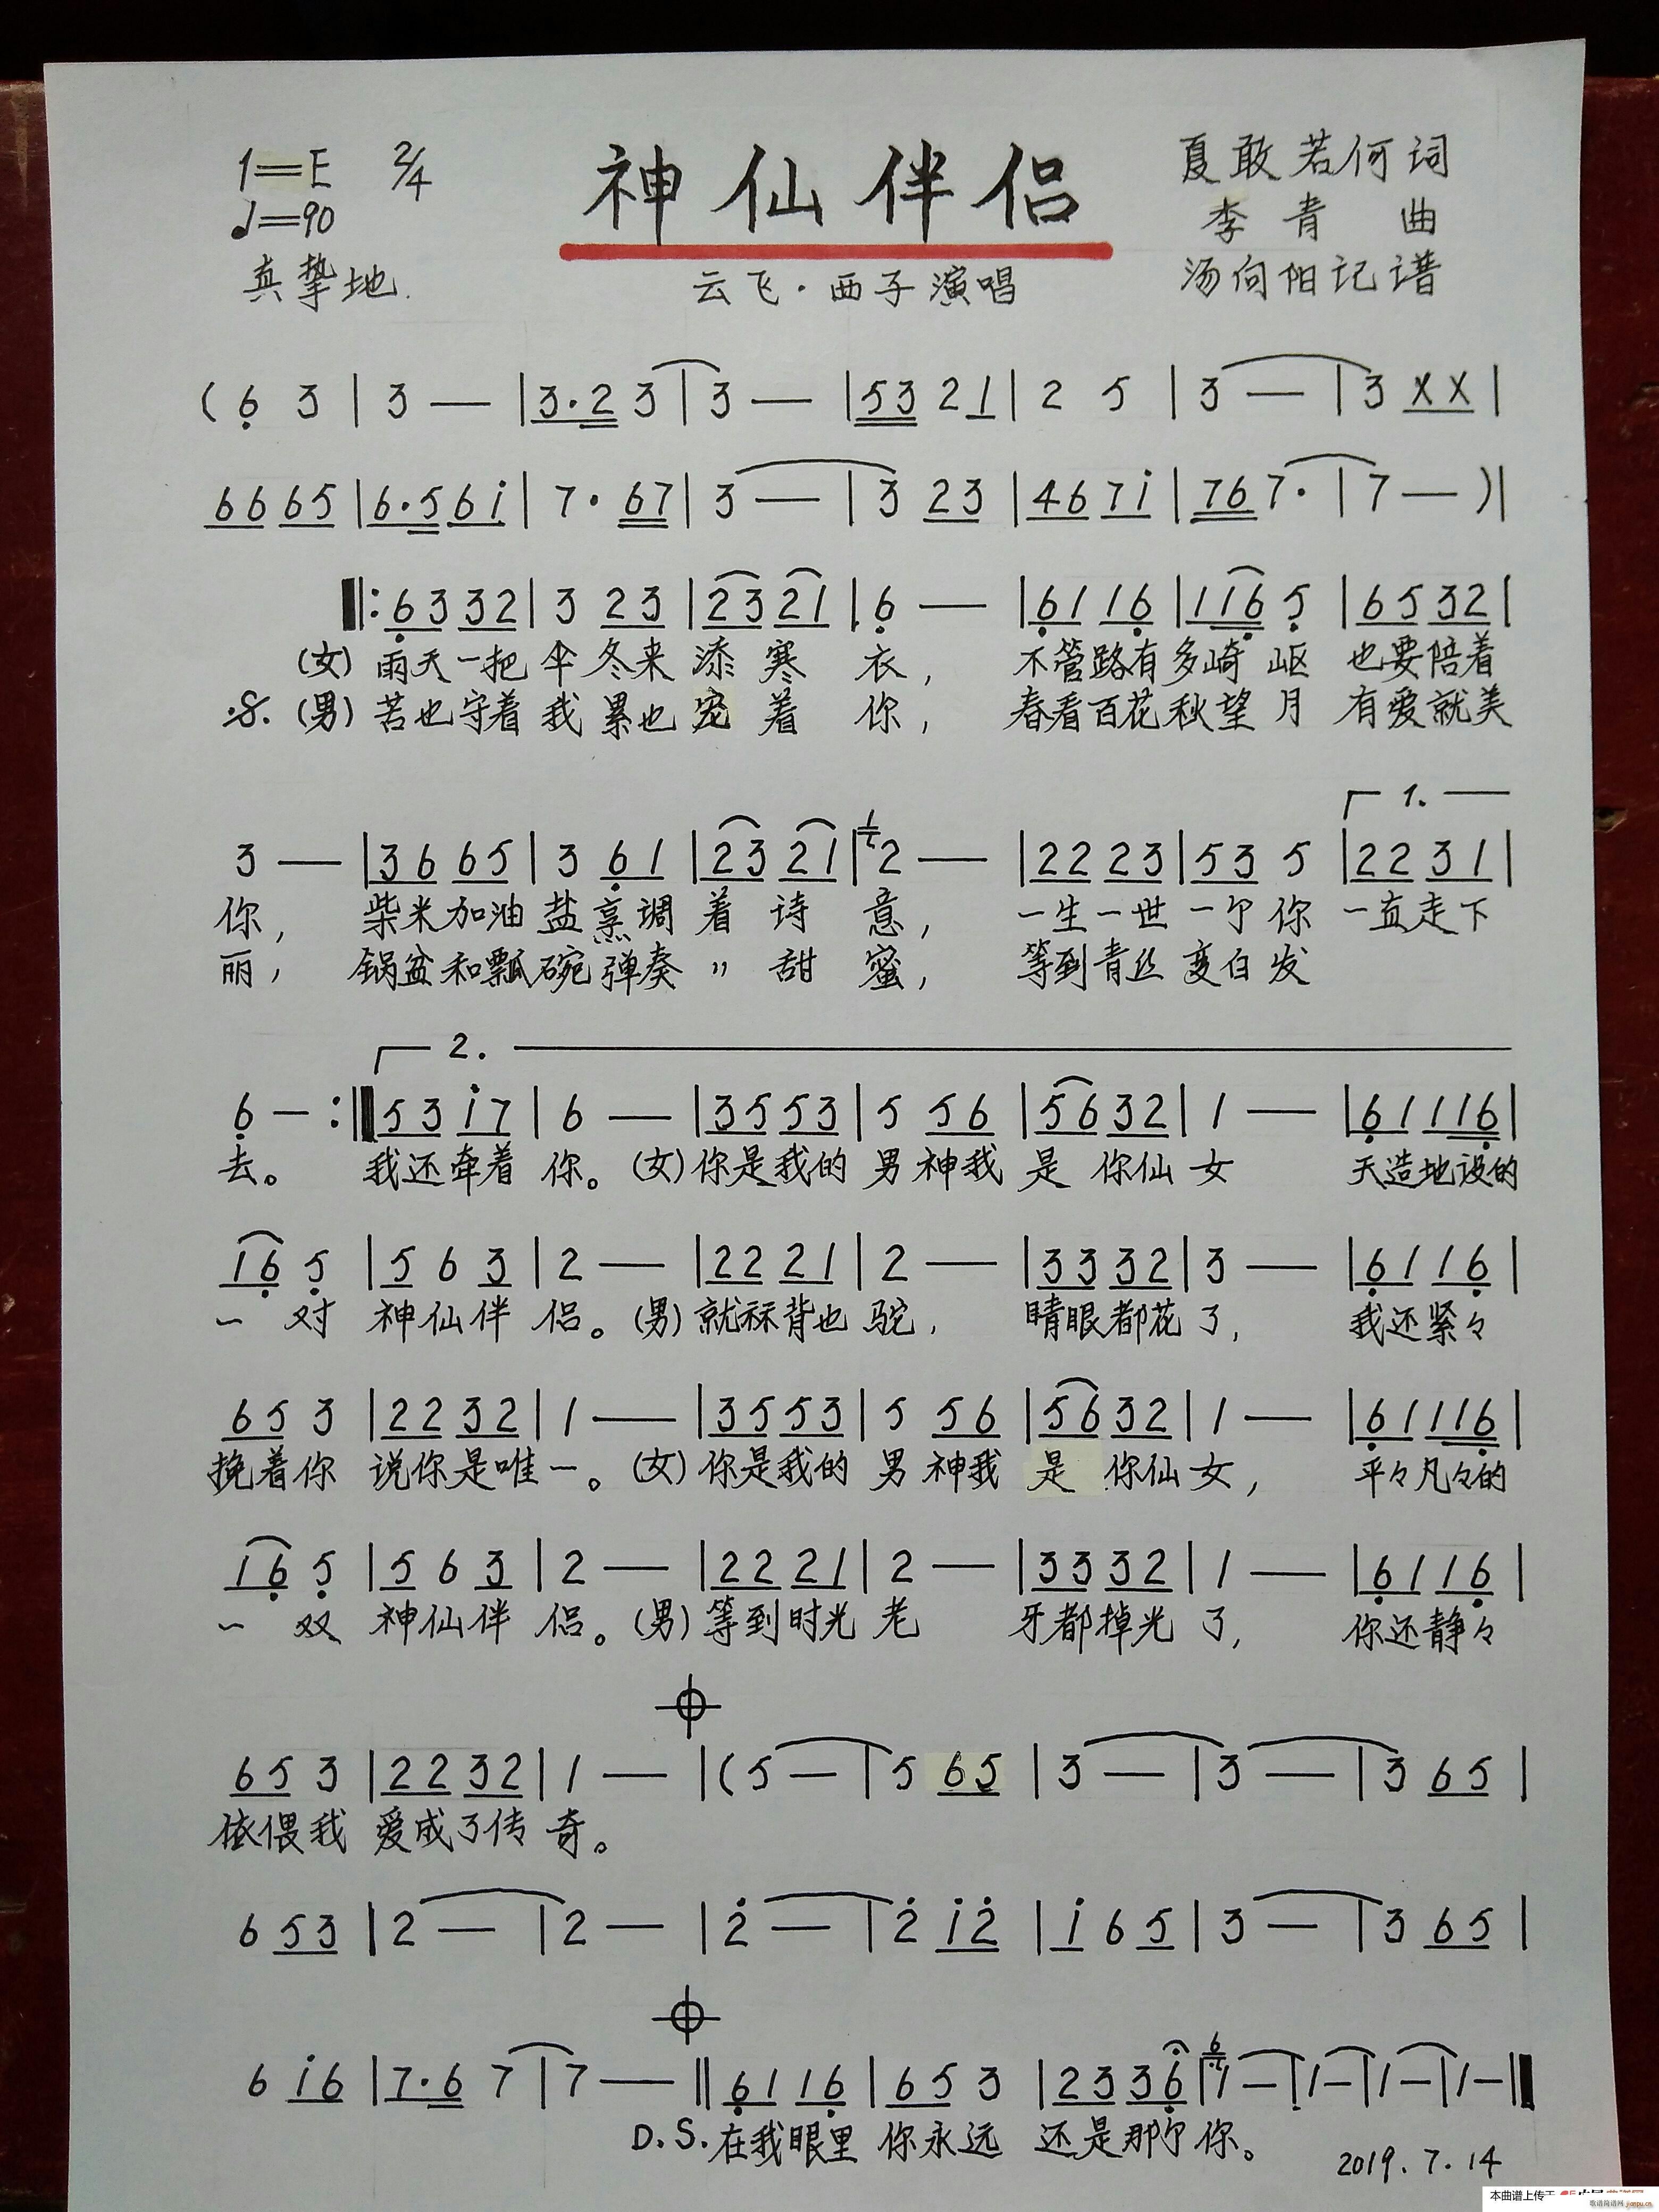 1=E 2/4 神仙伴侣 夏敢若何词
♩=90 李青 曲
真挚地. 云飞·西子演唱 汤向阳记谱
( 6̣ 3 | 3 — | 3·2 3 | 3 — | 53 2 1 | 2 5 | 3 — | 3 X X |
66 65 | 6·5 6i̇ | 7· 67 | 3 — | 3 23 | 46 7i̇ | 76 7· | 7 — ) |
‖: 6̣3 32 | 3 23 | 23 21 | 6̣ — | 6̣1 16̣ | 1 16̣ 5̣ | 65 32 |
(女) 雨天一把 伞 冬来 添 寒 衣, 不管路有多崎 岖 也要陪着
𝄋. (男) 苦也守着 我 累也 宠 着 你, 春看百花秋望 月 有爱就美
┌ 1. —
3 — | 36 65 | 3 6̣1 | 23 21 | 1 2 — | 22 23 | 53 5 | 22 31 |
你, 柴米加油 盐 烹调 着 诗 意, 一生一世 一个 你 一直走下
丽, 锅盆和瓢 碗 弹奏 〃 甜 蜜, 等到青丝 变白 发
┌ 2. —
6̣ — :‖ 53 i̇7 | 6 — | 35 53 | 5 56 | 56 32 | 1 — | 6̣1 116̣ |
去。 我还牵着 你。(女) 你是我的 男 神我 是 你仙 女 天造地设的
16̣ 5̣ | 5 6 3 | 2 — | 22 21 | 2 — | 33 32 | 3 — | 6̣1 16̣ |
一 对 神仙伴 侣。(男) 就秝背也 驼, 睛眼都花 了, 我还紧々
65 3 | 22 32 | 1 — | 35 53 | 5 56 | 56 32 | 1 — | 6̣1 116̣ |
挽着你 说你是唯 一。(女) 你是我的 男 神我 是 你仙 女, 平々凡々的
16̣ 5̣ | 5 6 3 | 2 — | 22 21 | 2 — | 33 32 | 1 — | 6̣1 16̣ |
一 双 神仙伴 侣。(男) 等到时光 老 牙都掉光 了, 你还静々
65 3 | 22 32 | 1 — | ( 5 — | 5 65 | 3 — | 3 — | 3 65 |
依偎我 爱成了传 奇。
6 53 | 2 — | 2 — | 2̇ — | 2̇ i̇2̇ | i̇ 6 5 | 3 — | 3 65 |
6 i̇6 | 7·6 7 | 7 — ‖ 6̣1 16̣ | 65 3 | 23 36̣ | 6 1 — | 1 — | 1 — | 1 — ‖
D.S. 在我眼里 你永远 还是那个 你。
2019.7.14
本曲谱上传于
歌谱简谱网 jianpu.cn